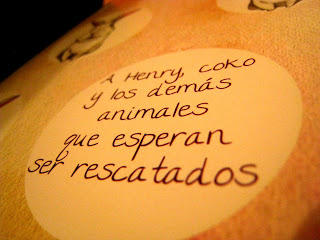 A Henry, coko
y los demás
animales
que esperan
ser rescatados